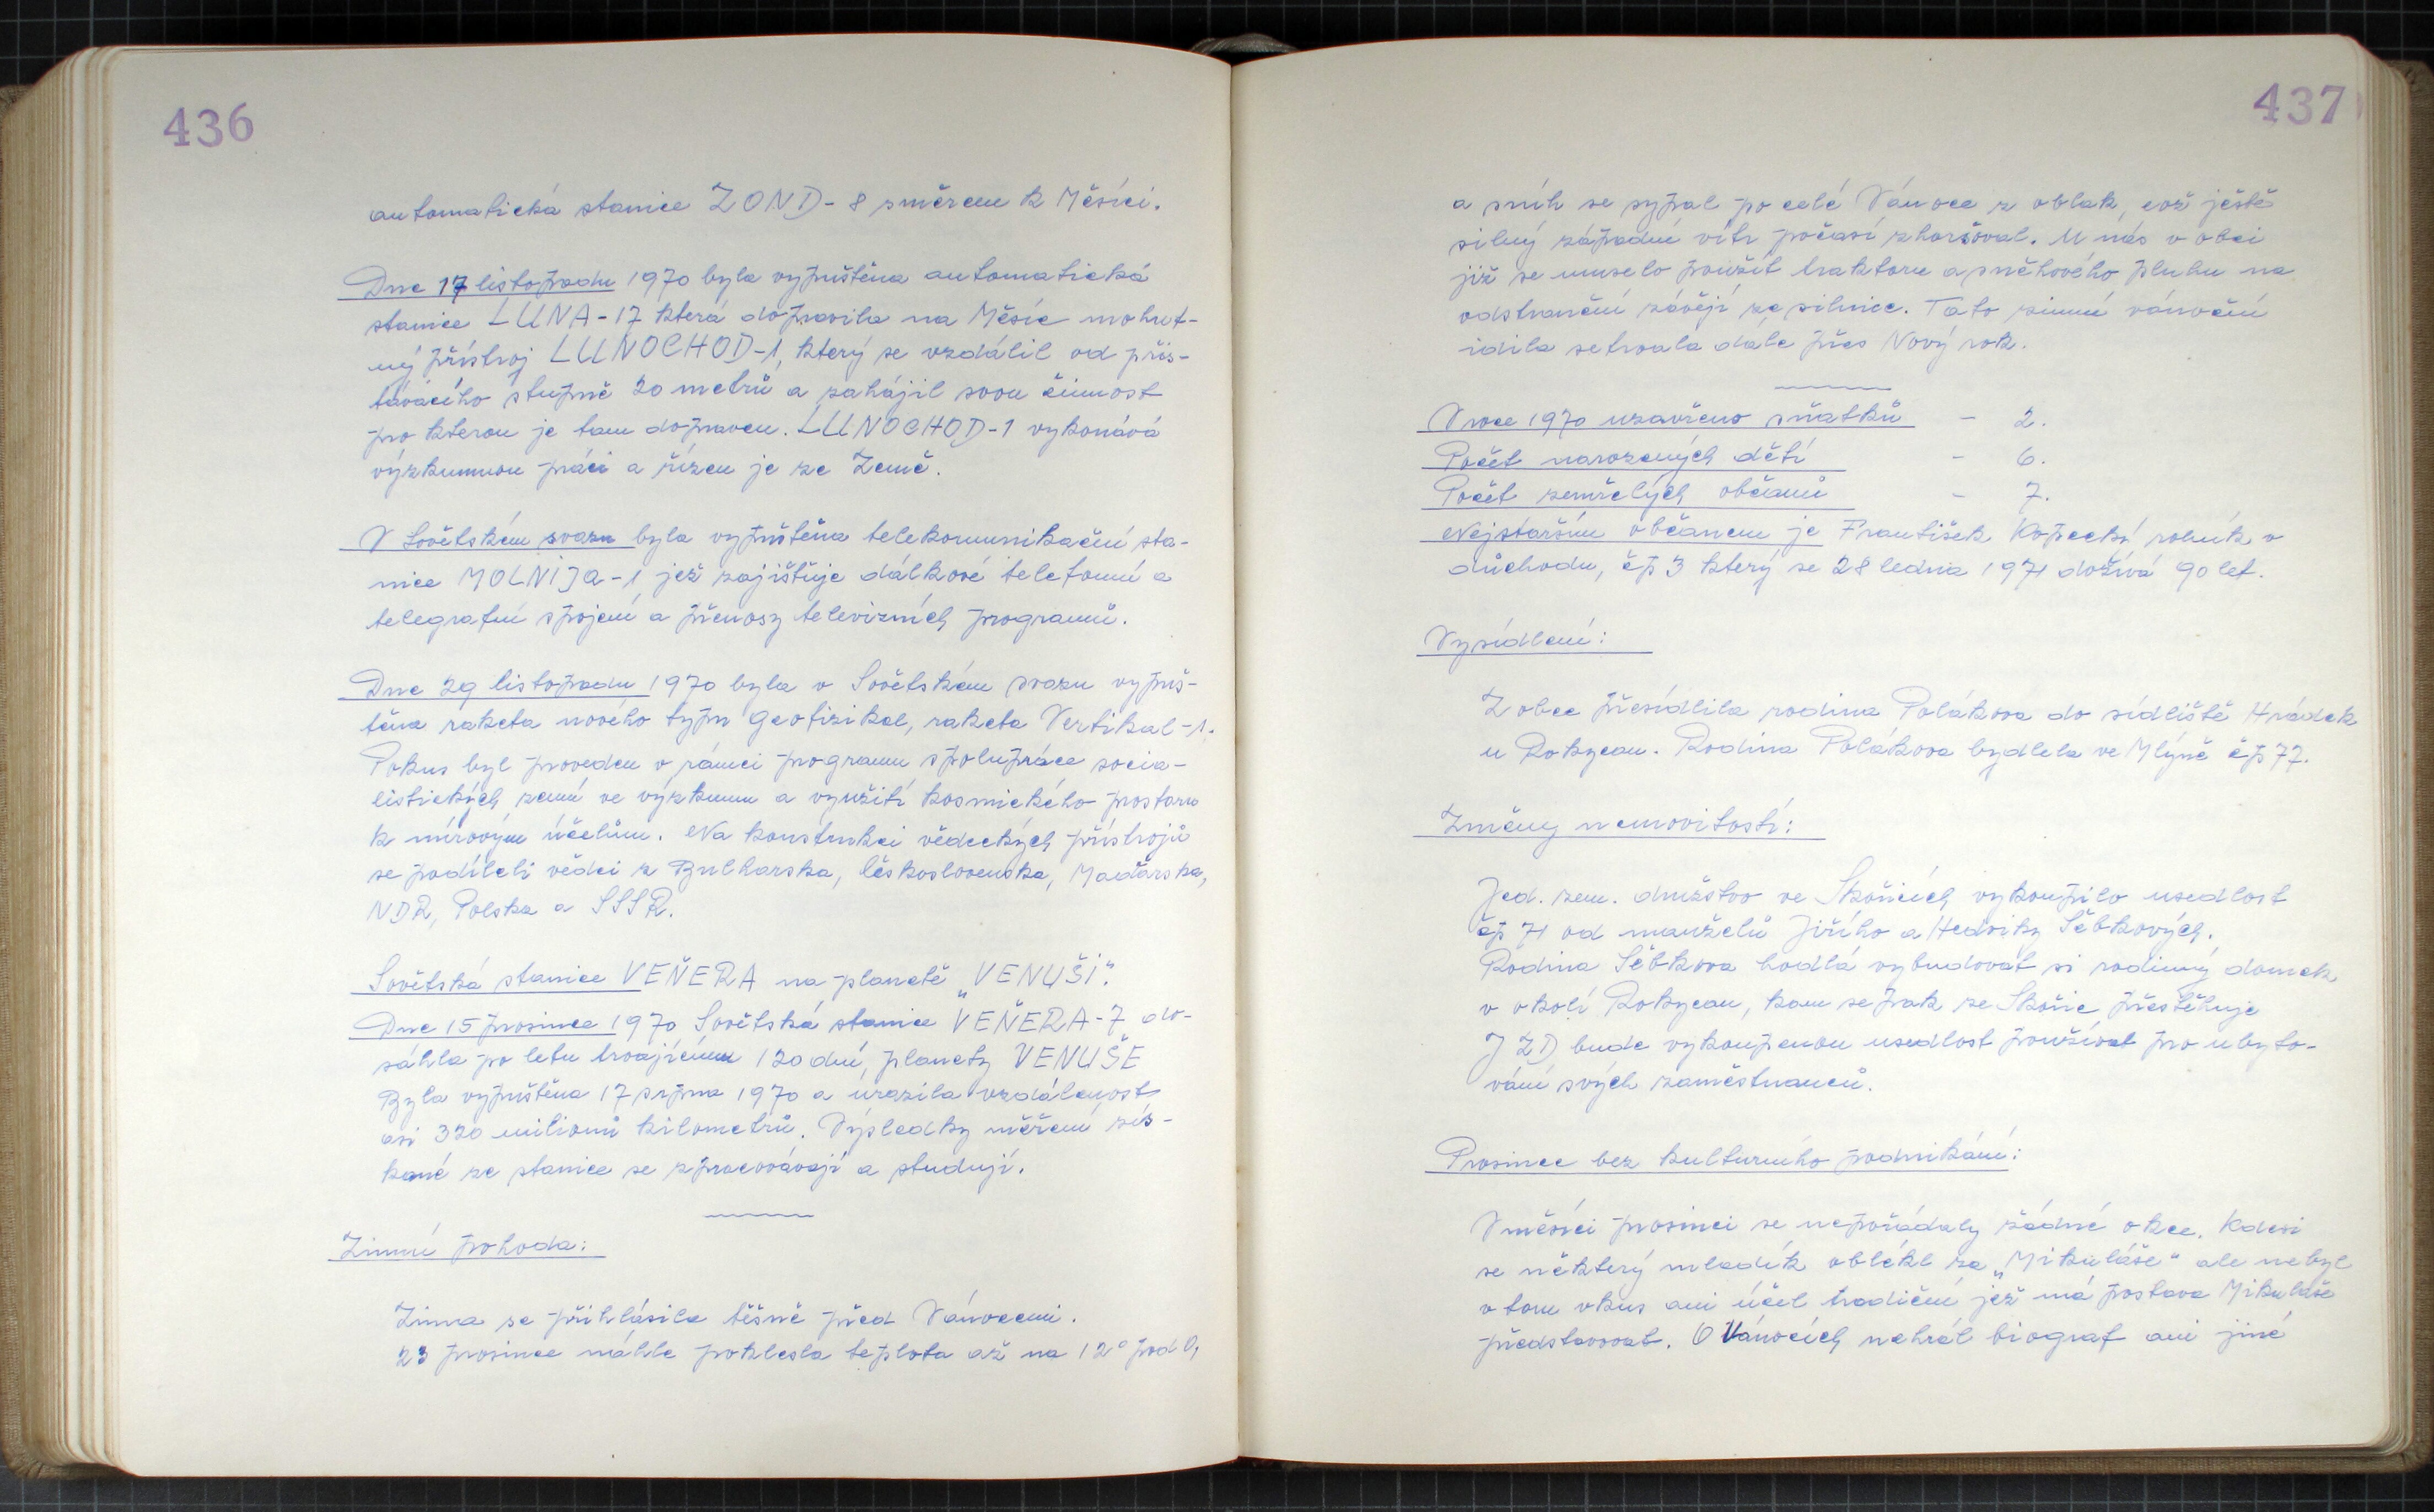 436
automatická stanice ZOND-8 směrem k Měsíci.
Dne 17 listopadu 1970 byla vypuštěna automatická
stanice LUNA-17 která dopravila na Měsíc mohut-
ný přístroj LUNOCHOD-1, který se vzdálil od přis-
távácího stupně 20 metrů a zahájil svou činnost
pro kterou je tam dopraven. LUNOCHOD-1 vykonává
výzkumnou práci a řízen je ze Země.
V Sovětském svazu byla vypuštěna telekomunikační sta-
nice MOLNIJA-1 jež zajištuje dálkové telefonní a
telegrafní spojení a přenosy televizních programů.
Dne 29 listopadu 1970 byla v Sovětském svazu vypuš-
těna raketa nového typu Geofizikal, raketa Vertikal-1.
Pokus byl proveden v rámci programu spolupráce socia-
listických zemí ve výzkumu a využití kosmického prostoru
k mírovým účelům. Na konstrukci vědeckých přístrojů
se podíleli vědci z Bulharska, Československa, Maďarska,
NDR, Polska a SSSR.
Sovětská stanice VEŇERA na planetě „VENUŠI".
Dne 15 prosince 1970 Sovětská stanice VEŇERA-7 do-
sáhla po letu trvajícímu 120 dní, planety VENUŠE
Byla vypuštěna 17 srpna 1970 a urazila vzdálenost
asi 320 milionů kilometrů. Výsledky měření zís-
kané ze stanice se zpracovávají a studují.
Zimní pohoda:
Zima se přihlásila těšně před Vánocemi.
23 prosince náhle poklesla teplota až na 12° pod 0,
437
a sníh se sypal po celé Vánoce z oblak, což ještě
silný západní vítr počasí zhoršoval. U nás v obci
již se muselo použít traktoru a sněhového pluhu na
odstranění závějí ze silnice. Tato zimní vánoční
idila setrvala dále přes Nový rok.
V roce 1970 uzavřeno sňatků - 2.
Počet narozených dětí - 6.
Počet zemřelých občanů - 7.
Nejstarším občanem je František Kopecký rolník v
důchodu, čp 3 který se 28 ledna 1971 dožívá 90 let.
Vysídlení:
Z obce přesídlila rodina Polákova do sídliště Hrádek
u Rokycan. Rodina Polákova bydlela ve Mlýně čp 77.
Změny nemovitostí:
Jed. zem. družstvo ve Skořicích vykoupilo usedlost
čp 71 od manželů Jiřího a Hedviky Sěbkových.
Rodina Sěbkova hodlá vybudovat si rodinný domek
v okolí Rokycan, kam se pak ze Skořic přestěhuje
JZD bude vykoupenou usedlost používat pro ubyto-
vání svých zaměstnanců.
Prosinec bez kulturního podnikání:
V měsíci prosinci se nepořádaly žádné akce. Kdesi
se některý mladík oblékl za „Mikuláše" ale nebyl
v tom vkus ani účel tradiční jež má postava Mikuláše
představovat. O Vánocích nehrál biograf ani jiné